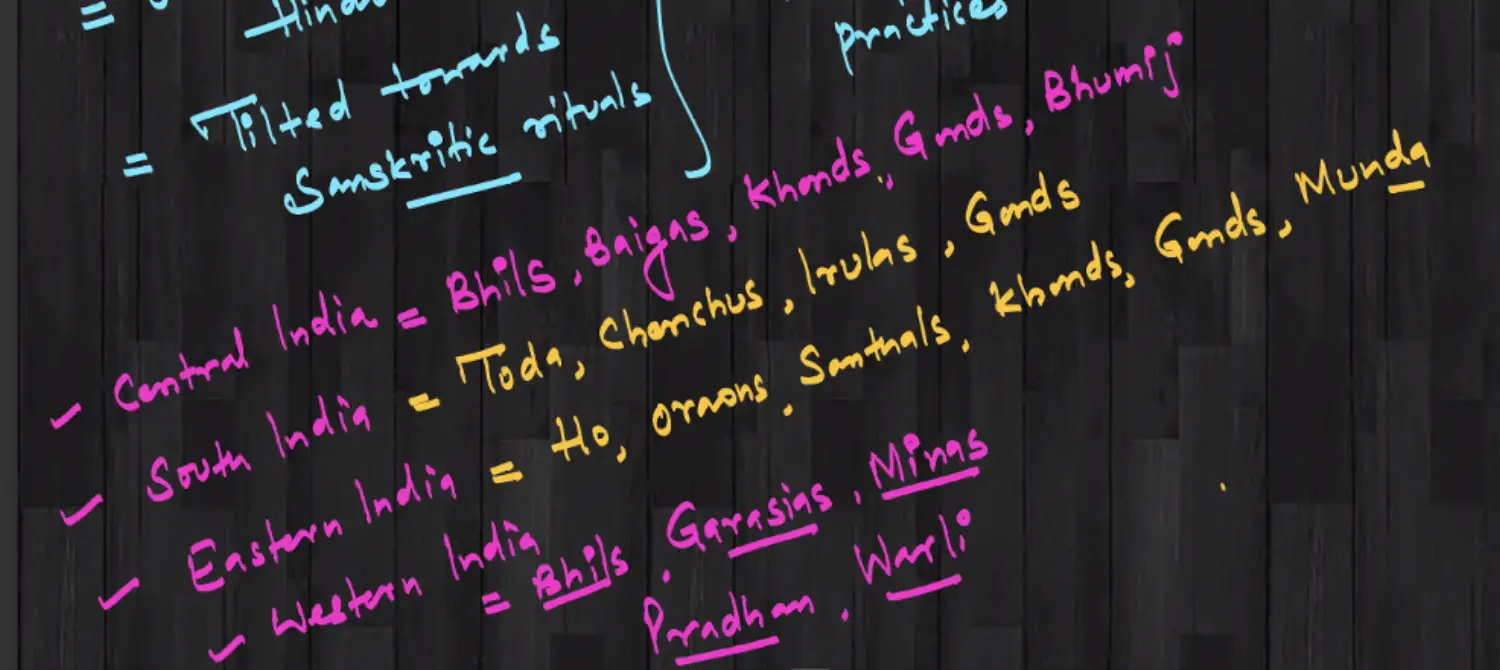 =
practices
= Tilted towards
Sanskritic rituals
Central India = Bhils, Baigas, Khonds, Gonds, Bhumij
South India = Toda, Chenchus, Irulas, Gonds
Eastern India = Ho, Oraons, Santhals, Khonds, Gonds, Munda
Western India = Bhils, Garasias, Minas
Pradhan, Warli